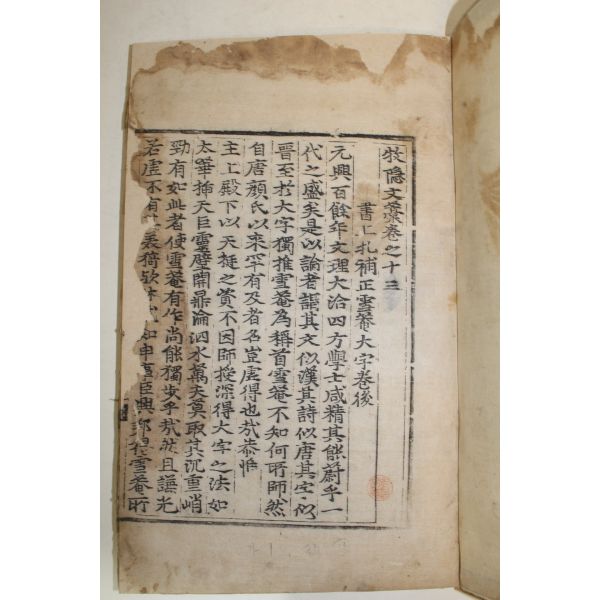 牧隱文藁卷之十三
書上札補正雪菴大字卷後
元興百餘年文理大洽四方學士咸精其能蔚乎一
代之盛矣是以論者謂其文似漢其詩似唐其字似
晉至於大字獨推雪菴爲稱首雪菴不知何所師然
自唐顔氏以來罕有及者名豈虛得也㢤恭惟
主上殿下以天挺之資不因師授深得大字之法如
太華揷天巨靈擘開鼎淪泗水萬夫莫取其沉重峭
勁有如此者使雪菴有作尚能獨步乎㢤然且謙光
若虛不有其美猗歟 知申 臣興 雪菴所